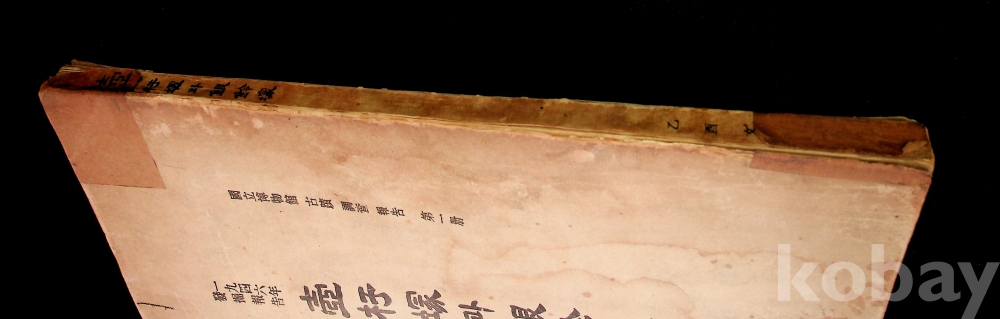 壺杅塚과銀鈴塚
乙酉文
國立博物館 古蹟 調査 報告 第一册
一九四六年
發掘報告
壺杅塚과銀
kobay